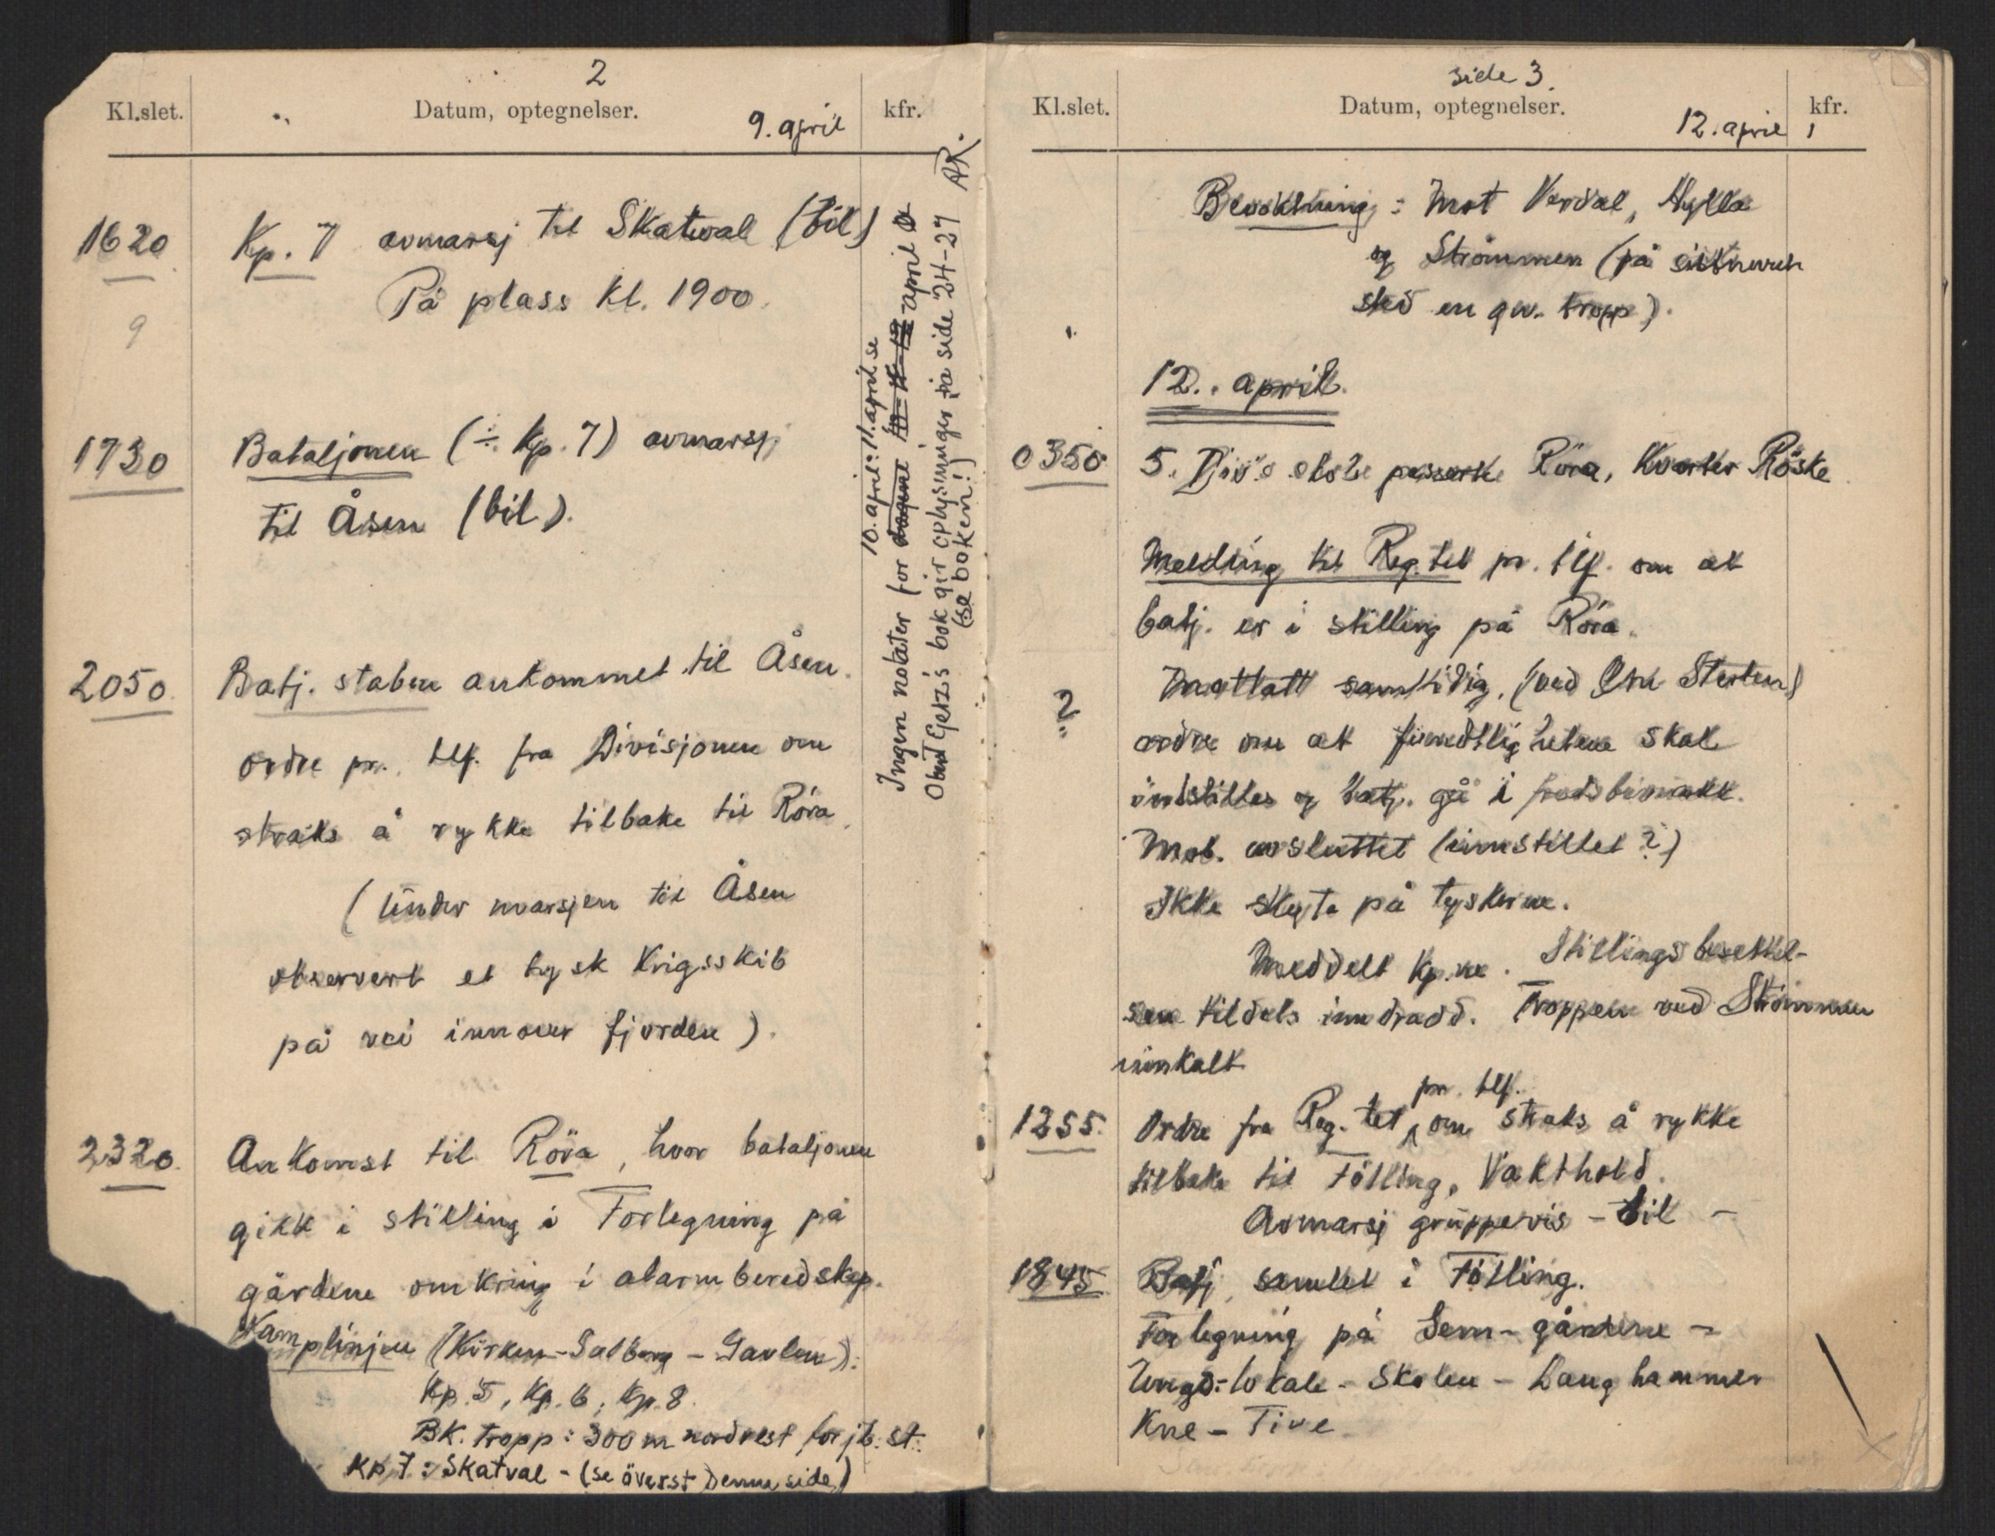 2
Kl.slet.
Datum, optegnelser.
9. april
kfr.
1620
Kp. 7 avmarsj til Skatval (bil)
På plass kl. 1900.
9
1730
Bataljonen (÷ Kp. 7) avmarsj
til Åsen (bil).
2050
Batj. staben ankommet til Åsen.
ordre pr. tlf. fra Divisjonen om
straks å rykke tilbake til Röra.
(Under marsjen til Åsen
observert et tysk Krigsskib
på vei innover fjorden).
2320.
Ankomst til Röra, hvor bataljonen
gikk i stilling i Forlegning på
gårdene omkring i alarmberedskap.
Kamplinjen (Kirken - Salberg - Gaulen):
Kp. 5, Kp. 6, Kp. 8.
BK. tropp: 300 m nordvest for jb. st.
Kp. 7: Skatval - (se överst denne side)
10. april: 11. april se
Ingen notater for dagene 10-11-12 april
Oberst Getz's bok gir oplysninger på side 24-27
(se boken!)
side 3.
Kl.slet.
Datum, optegnelser.
12. april
kfr.
Bevoktning: Mot Verdal, Hylla
og Strömmen (på sistnevnte
sted en gev. tropp).
12. april.
0350
5. Div's stab passerte Röra, Kvarter Röske
Melding til Reg.tet pr. tlf. om at
batj. er i stilling på Röra.
?
Mottatt samtidig, (ved Stertem)
ordre om at fiendtlighetene skal
innstilles og batj. gå i
Mob. avsluttet (innstillet?)
Ikke skyte på tyskerne.
Meddelt Kp.ne. Stillingsbesettel-
sen tildels inndradd. Troppen ved Strömmen
innkalt
1255.
Ordre fra Reg.-tet pr. tlf. om straks å rykke
tilbake til Fölling, Vakthold.
Avmarsj gruppevis - bil -
1845
Batj. samlet i Fölling.
Forlegning på Sem-gårdene -
Ungd.-lokale - Skolen - Langhammer
Kne - Five